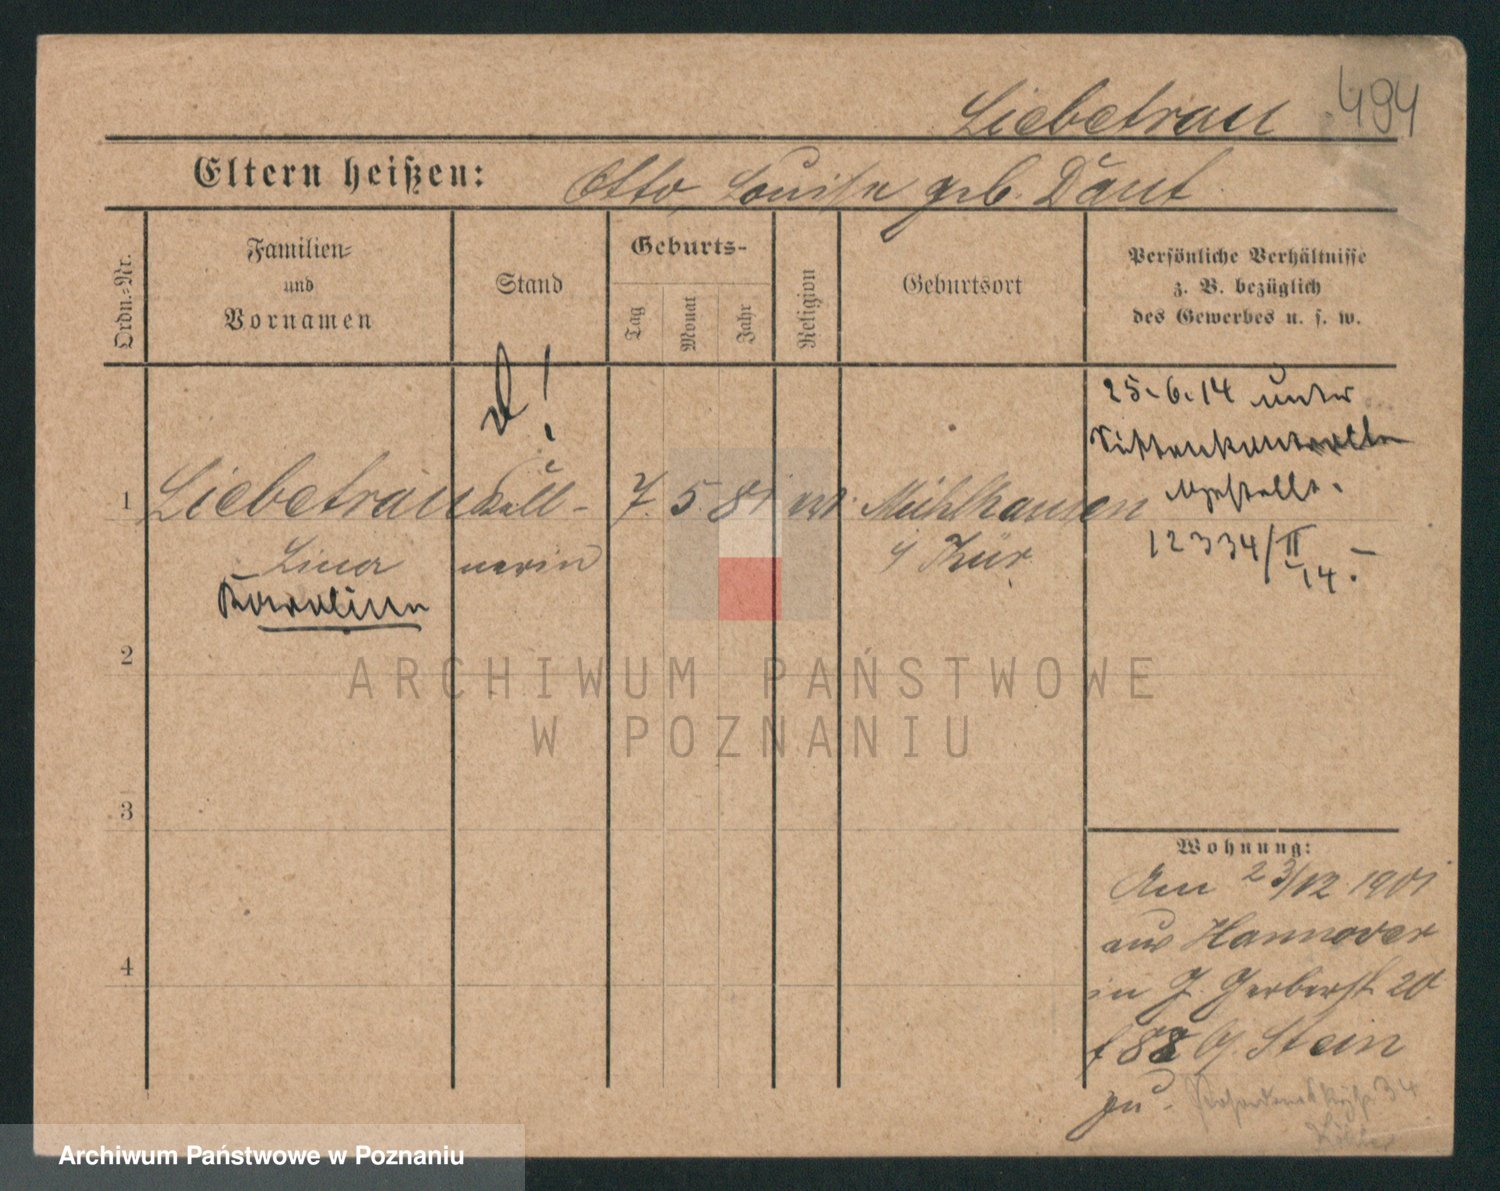 Liebetrau 494
Eltern heißen: Otto, Louise geb. Daut
Ordn.-Nr.
Familien-
und
Vornamen
Stand
Geburts-
Tag
Monat
Jahr
Religion
Geburtsort
Persönliche Verhältnisse
z. B. bezüglich
des Gewerbes u. s. w.
25.6.14 unter
Sittenkontrolle
gestellt.
12334/II
14.
1 Liebetrau Kell- 7. 5. 81 Mühlhausen
Lina nerin Thür
Karoline
2
3
4
Wohnung:
Am 23/12 1901
aus Hannover
in J. Gerberst 20
b. Stein
zu.
ARCHIWUM PAŃSTWOWE
W POZNANIU
Archiwum Państwowe w Poznaniu